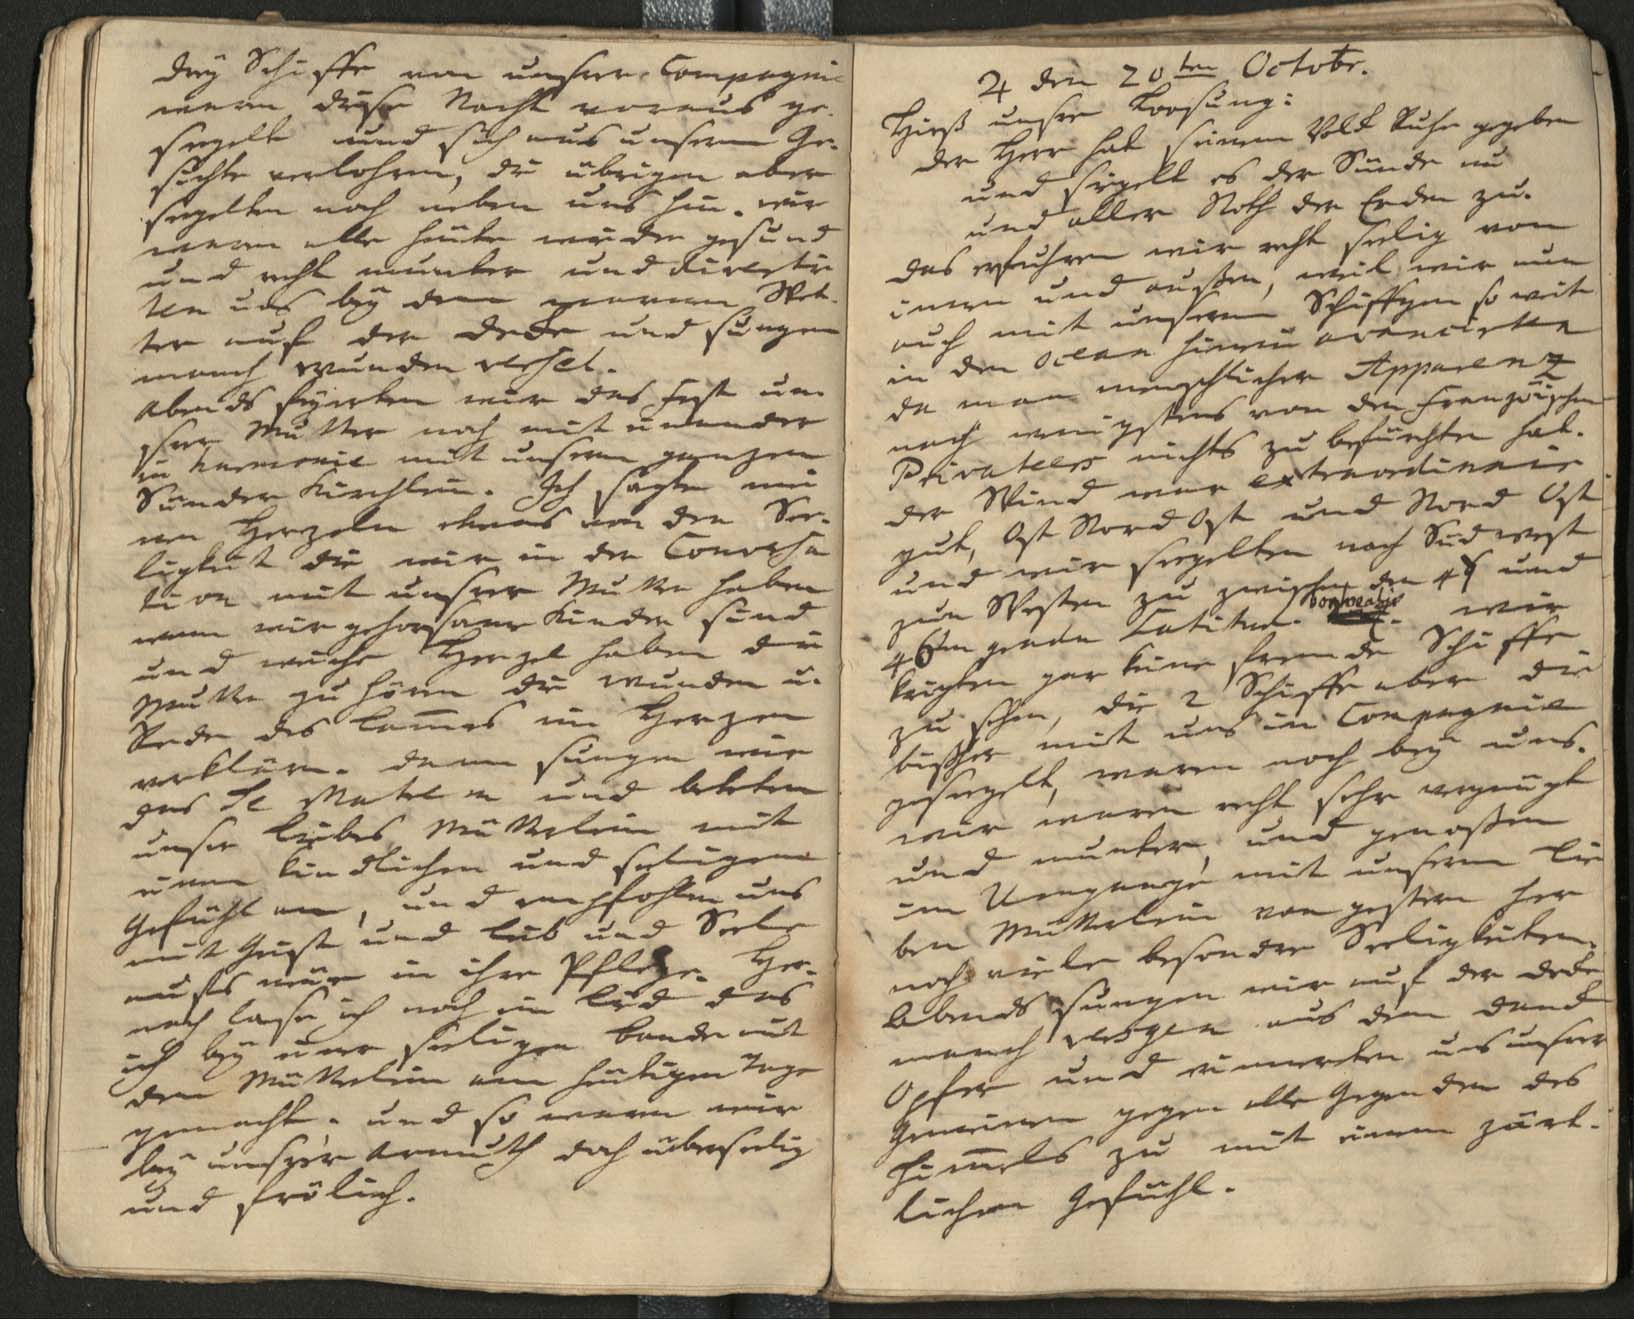 drey Schiffe von unsrer Compagnie
waren diese Nacht voraus ge-
segelt und sich aus unserm Ge-
sichte verlohren, die übrigen aber
segelten noch neben uns hin. wir
waren alle heute wieder gesund
und recht munter und divertir
ten uns bey dem warmen Wet-
ter auf der Decke und sungen
manch Wunden versel.
Abends feyerten wir das Fest un-
srer Mutter noch mit einander
in harmonie mit unserm ganzen
Sünder Kirchlein. Ich sagte mei
nen Herzeln etwas von der See-
ligkeit die wir in der Conversa
tion mit unsrer Mutter haben
wenn wir gehorsame Kinder sind
und weiche Herzel haben die
Mutter zu hören die Wunden u.
Rede des Lam̄es im Herzen
verklären. dann sungen wir
das Te Matrem und beteten
unser liebes Mütterlein mit
einem kindlichen und seeligem
Gefühl an, und empfohlen uns
mit Geist und Leib und Seele
aufs neue in ihre Pflege. Her-
nach lase ich noch ein Lied das
ich bey einer seeligen bande mit
dem Mütterlein am heutigen Tage
gemacht. und so waren wir
bey unsrer Armuth doch überseelig
und frölich.
♃ den 20ten Octobr.
Hieß unsre Loosung:
der Herr hat seinem Volck Ruhe gegeben
und siegelt es der Sünde nu
und aller Noth der Erden zu.
das erfuhren wir recht seelig von
innen und außen, weil wir nun
auch mit unserem Schiffgen so weit
in den Ocean hinein avancirten
da man menschlicher Apparenz
nach wenigstens von den Französischen
Privateers nichts zu befürchten hat.
der Wind war extraordinair
gut, Ost Nord Ost und Nord Ost
und wir segelten nach Südwest
zum Westen zu zwischen den 48 und
46ten graden Latitud. wir
kriegten gar keine fremde Schiffe
zu sehen, die 2 Schiffe aber die
bißher mit uns in Compagnie
gesegelt, waren noch bey uns.
wir waren recht sehr vergnügt
und munter, und genoßen
im Umgange mit unserm lie
ben Mütterlein von gestern her
noch viele besondre Seeligkeiten.
Abends sungen wir auf der Decke
manch versgen aus dem Danck
Opfer und erinnerten uns unsrer
Gemeinen gegen alle Gegenden des
Him̄els zu mit einem zärt-
lichen Gefühl.